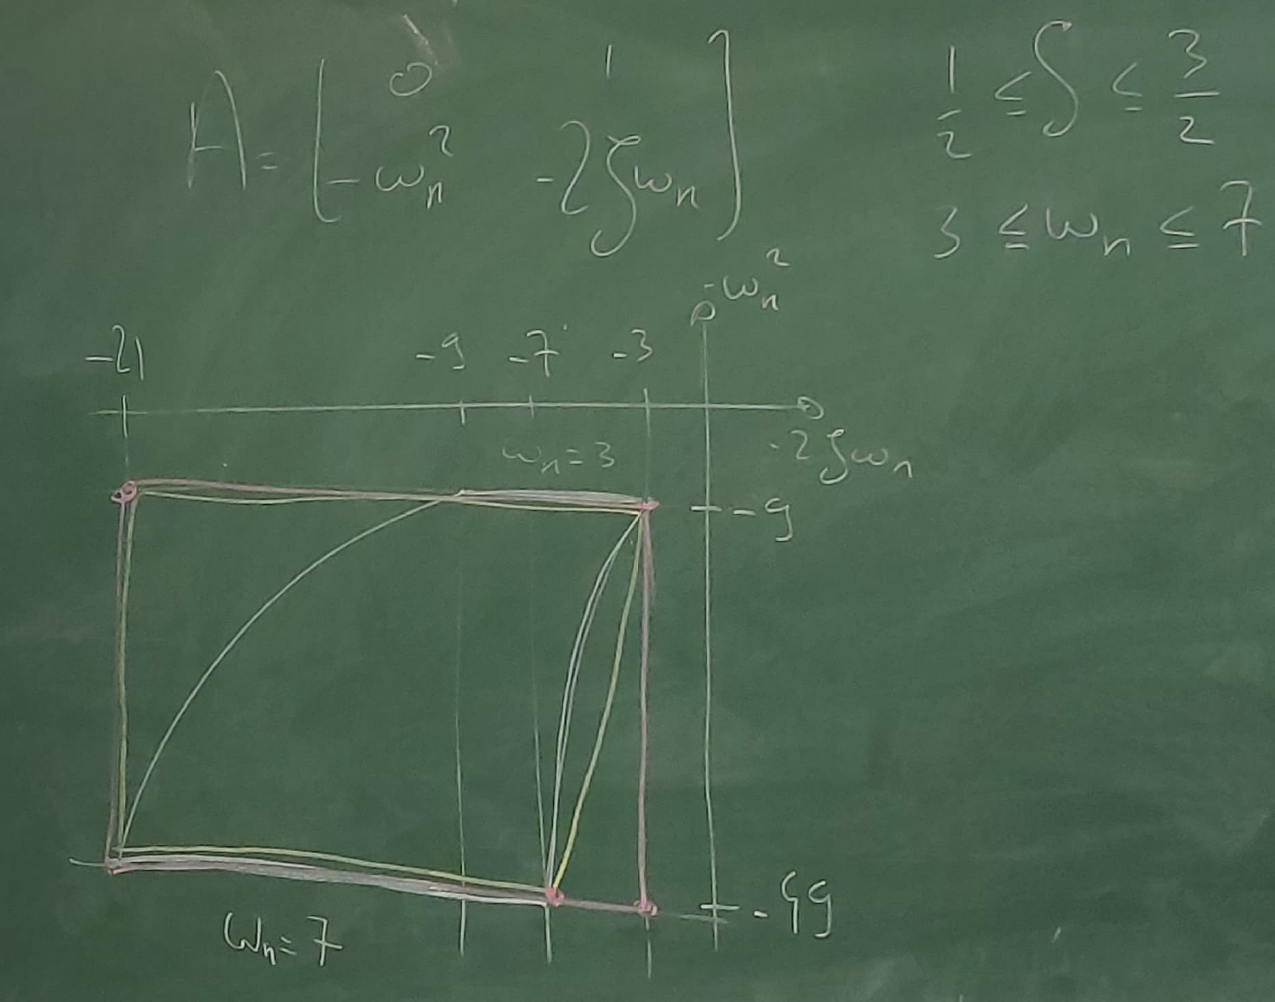 A = [ 0 1
-ωₙ² -2ζωₙ ]
1/2 ≤ ζ ≤ 3/2
3 ≤ ωₙ ≤ 7
-ωₙ²
-21 -9 -7 -3
ωₙ=3
-2ζωₙ
-9
-49
ωₙ=7